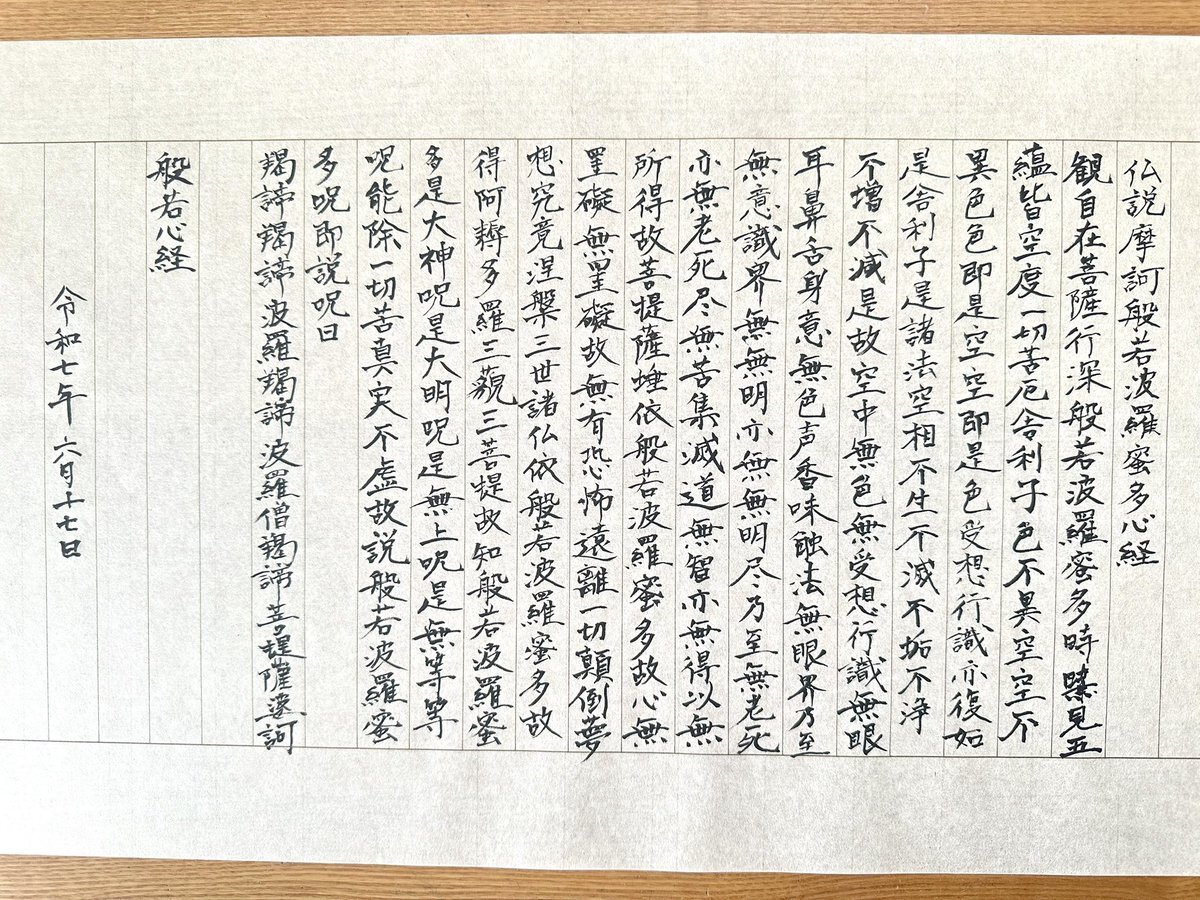 仏説摩訶般若波羅蜜多心経
観自在菩薩行深般若波羅蜜多時照見五
蘊皆空度一切苦厄舎利子色不異空空不
異色色即是空空即是色受想行識亦復如
是舎利子是諸法空相不生不滅不垢不浄
不増不減是故空中無色無受想行識無眼
耳鼻舌身意無色声香味触法無眼界乃至
無意識界無無明亦無無明尽乃至無老死
亦無老死尽無苦集滅道無智亦無得以無
所得故菩提薩埵依般若波羅蜜多故心無
罣礙無罣礙故無有恐怖遠離一切顛倒夢
想究竟涅槃三世諸仏依般若波羅蜜多故
得阿耨多羅三藐三菩提故知般若波羅蜜
多是大神呪是大明呪是無上呪是無等等
呪能除一切苦真実不虚故説般若波羅蜜
多呪即説呪曰
羯諦羯諦波羅羯諦波羅僧羯諦菩提薩婆訶
般若心経
令和七年六月十七日